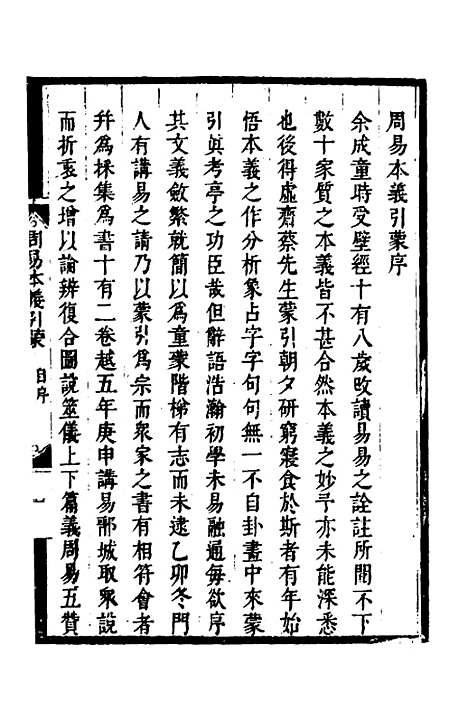 周易本義引蒙序
余成童時受壁經十有八歲改讀易易之詮註所聞不下
數十家質之本義皆不甚合然本義之妙予亦未能深悉
也後得虛齋蔡先生蒙引朝夕研窮寢食於斯者有年始
悟本義之作分析象占字字句句無一不自卦畫中來蒙
引眞考亭之功臣哉但辭語浩瀚初學未易融通每欲序
其文義斂繁就簡以爲童蒙階梯有志而未逮乙卯冬門
人有講易之請乃以蒙引爲宗而衆家之書有相符會者
幷爲採集爲書十有二卷越五年庚申講易鄆城取衆說
而折衷之增以論辨復合圖說筮儀上下篇義周易五贊
周易本義引蒙 自序 一